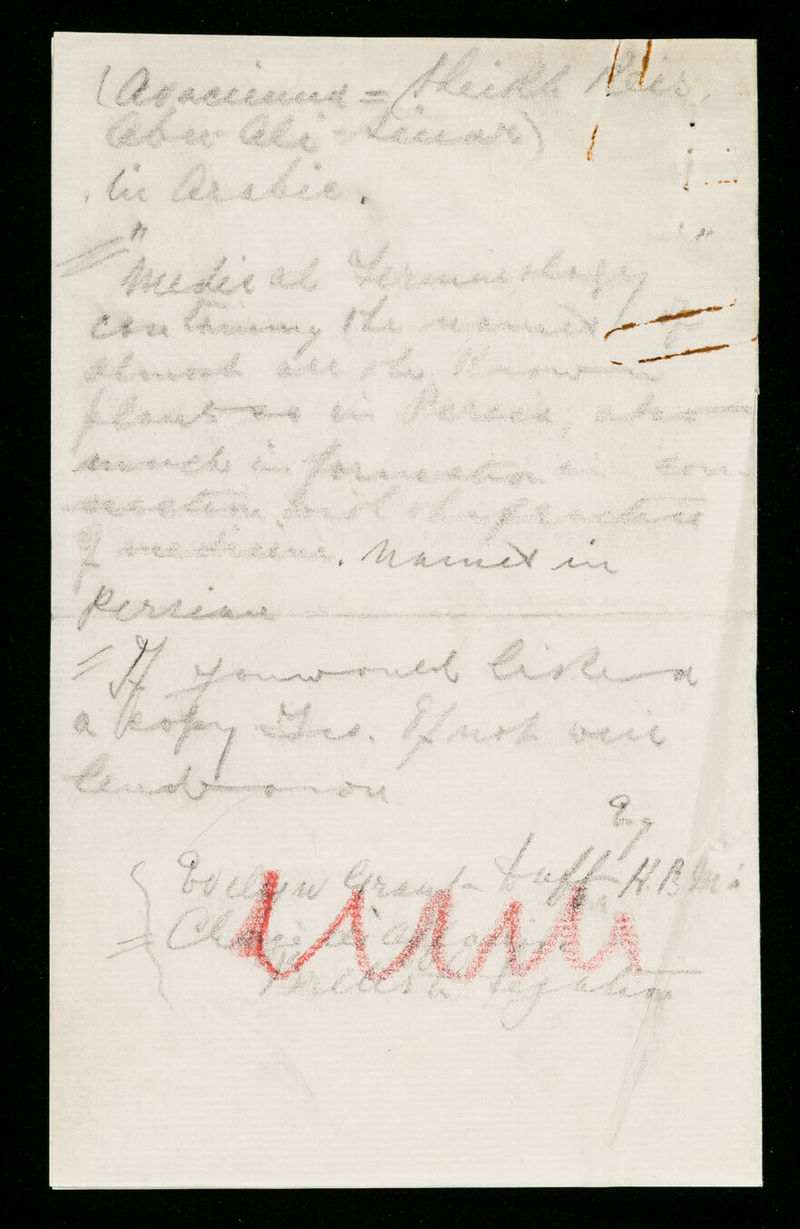 (Avacinna = (Sheikh Reis.
Abu Ali Sinar)
in Arabic.
" "
Medical Terminology
containing the names of
almost all the known
plants in Persia, also
much information in con-
nection with the practice
of medicine. Names in
Persian
= If you would like
a copy Yes. If not will
lend
By
Evelyn Grant Duff H.B.M's
= Chargé d'affaires
British Legation